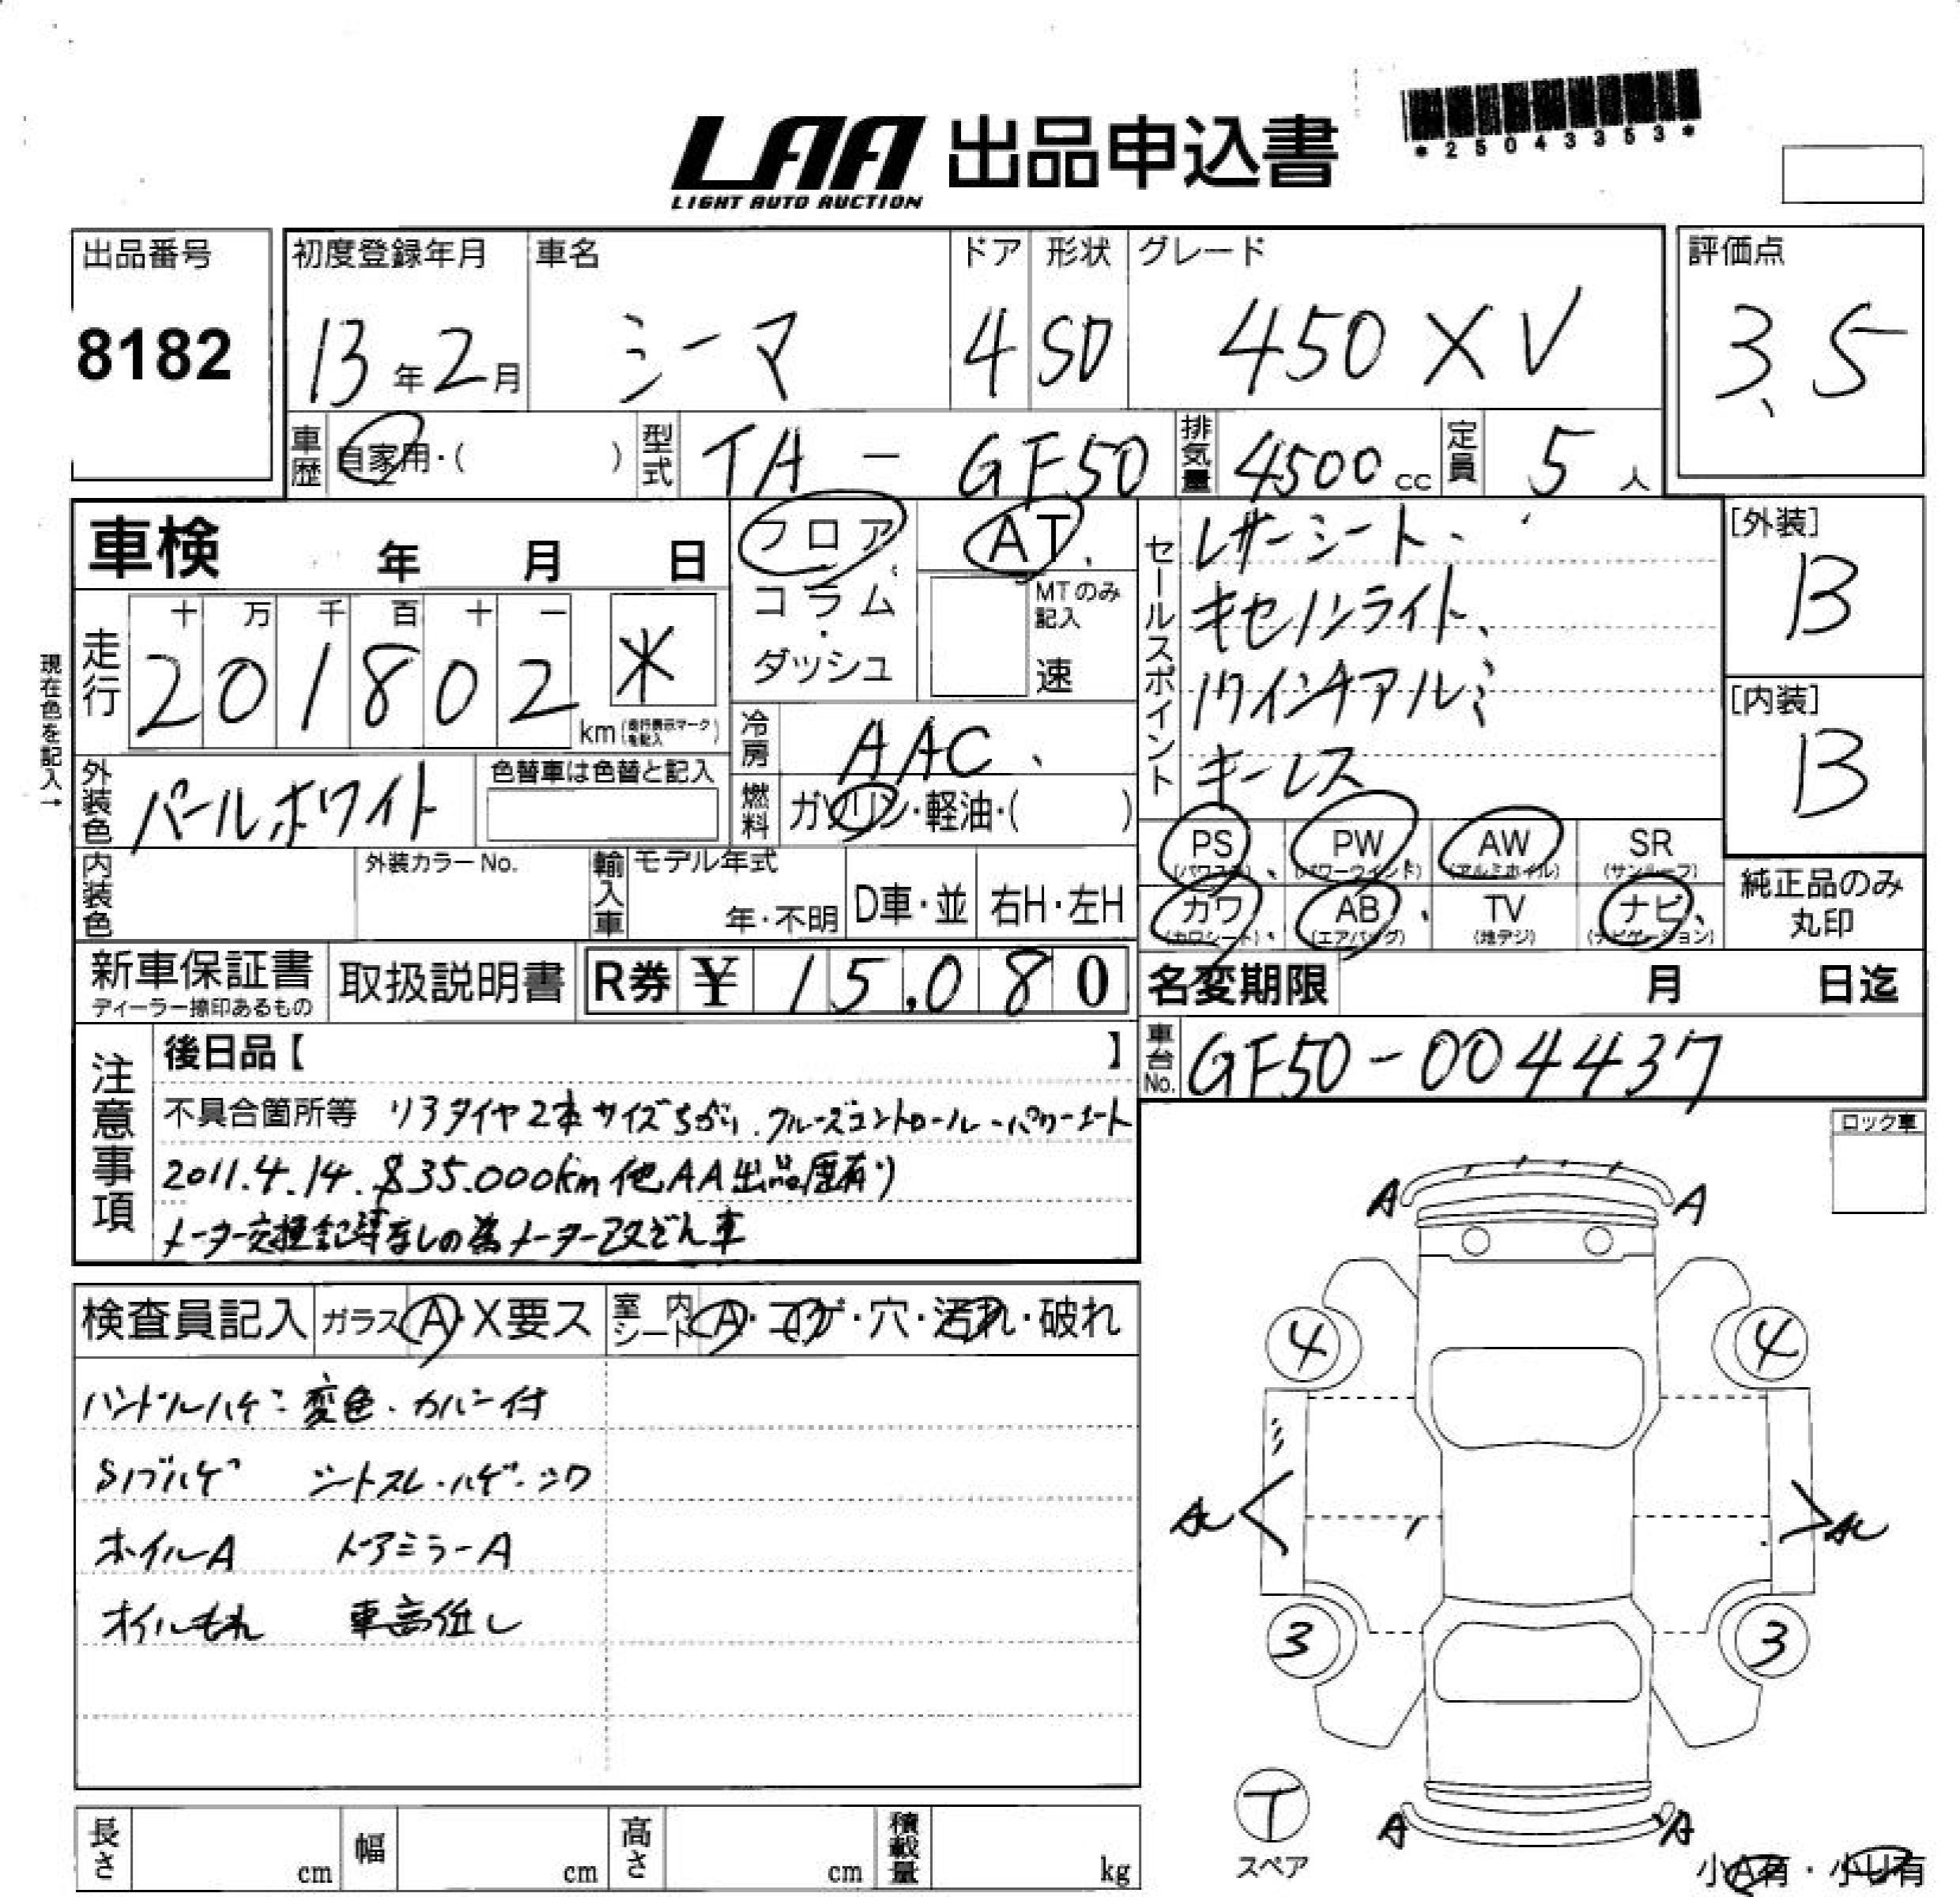 *25043353*
LAA 出品申込書
LIGHT AUTO AUCTION
出品番号 初度登録年月 車名 ドア 形状 グレード 評価点
8182 13年2月 シーマ 4 SD 450XV 3.5
車歴 自家用・( ) 型式 TA - GF50 排気量 4500cc 定員 5人
車検 年 月 日 フロア AT
コラム・ダッシュ MTのみ記入 速
セールスポイント レザーシート、
キセノンライト、
17インチアルミ
キーレス
[外装] B
[内装] B
現在色を記入→
走行 十 万 千 百 十 一
201802 km * (走行表示マークを記入)
冷房 AAC
外装色 パールホワイト 色替車は色替と記入
燃料 ガソリン・軽油・( )
内装色 外装カラーNo. 輸入車 モデル年式 年・不明 D車・並 右H・左H
PS (パワステ) PW (パワーウインド) AW (アルミホイル) SR (サンルーフ)
カワ (カワシート) AB (エアバッグ) TV (地デジ) ナビ (ナビゲーション)
純正品のみ丸印
新車保証書 ディーラー捺印あるもの 取扱説明書 R券 ¥ 15,080
名変期限 月 日迄
車台No. GF50-004437
注意事項
後日品【 】
不具合箇所等 リヤタイヤ2本サイズちがい.クルーズコントロール・パワーシート
2011.4.14. 835.000km 他AA出品歴有り
メーター交換記録なしの為メーター改ざん車
ロック車
検査員記入 ガラス A・X要ス 室内シート A・コゲ・穴・汚れ・破れ
ハンドルハゲ・変色・カバー付
Sノブハゲ シートスレ・ハゲ・シワ
ホイルA ドアミラーA
オイルもれ 車高低し
A A
4 4
3 3
A A
T
スペア
小A有・小U有
長さ cm 幅 cm 高さ cm 積載量 kg